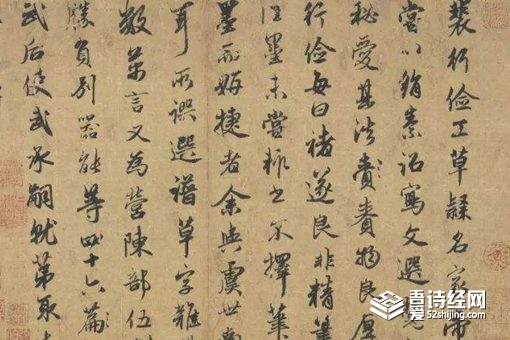 裴行儉工草隸名家帝
嘗以絹素詔寫文選
秘愛其法賚賚物良厚
行儉每曰褚遂良非精筆
佳墨未嘗輒書不擇筆
墨而妍捷者余與虞世南
耳所譔選譜草字雜
數萬言又為營陳部伍
勝負別器能等四十六篇
武后使武承嗣就第取
吾诗经网
52shijing.com